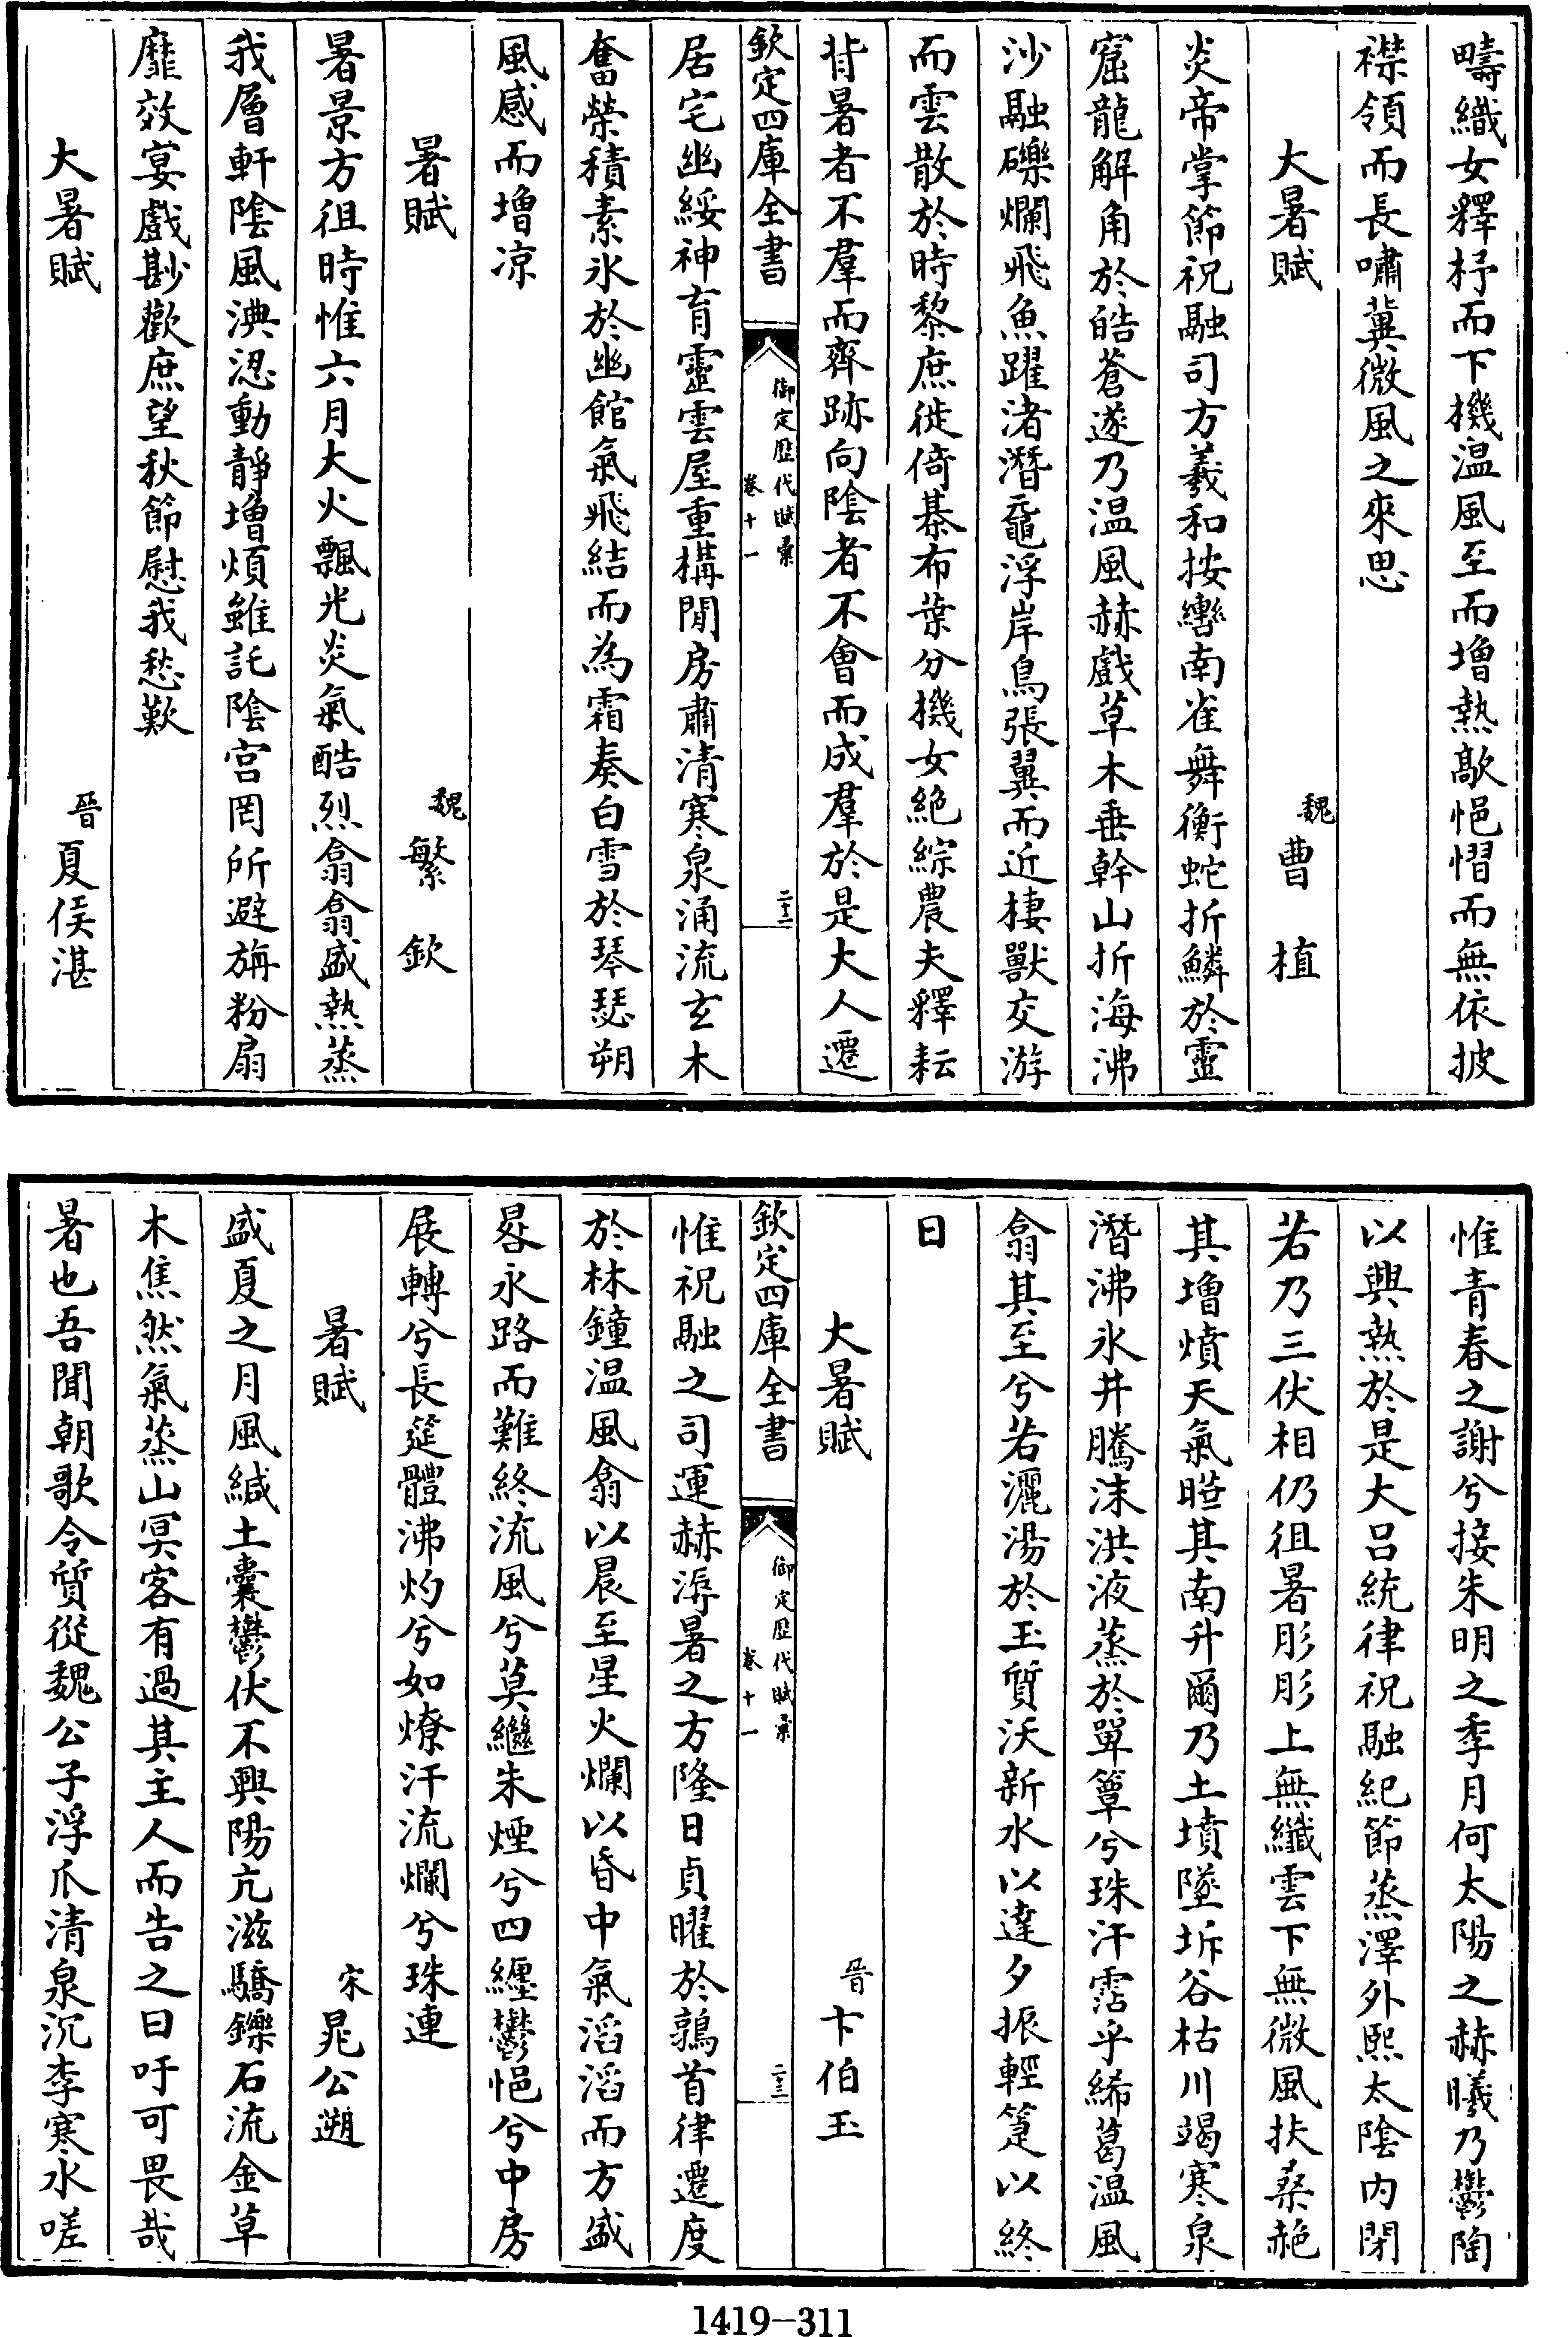 疇織女釋杼而下機温風至而増熱歊悒慴而無依披
襟領而長嘯冀微風之來思
大暑賦 魏曹植
炎帝掌節祝融司方羲和按轡南雀舞衡蛇折鱗於靈
窟龍解角於皓蒼遂乃温風赫戲草木垂幹山折海沸
沙融礫爛飛魚躍渚潛黿浮岸鳥張翼而近棲獸交游
而雲散於時黎庶徙倚棊布葉分機女絶綜農夫釋耘
背暑者不羣而齊跡向陰者不會而成羣於是大人遷
欽定四庫全書 御定歴代賦彙 卷十一 二十二
居宅幽綏神育靈雲屋重構閒房肅清寒泉涌流玄木
奮榮積素氷於幽館氣飛結而為霜奏白雪於琴瑟朔
風感而増凉
暑賦 魏繁欽
暑景方徂時惟六月大火飄光炎氣酷烈翕翕盛熱蒸
我層軒陰風淟涊動靜増煩雖託陰宫罔所避旃粉扇
靡效宴戲尠歡庶望秋節慰我愁歎
大暑賦 晉夏侯湛
惟青春之謝兮接朱明之季月何太陽之赫曦乃鬱陶
以興熱於是大吕統律祝融紀節蒸澤外熙太陰内閉
若乃三伏相仍徂暑彤彤上無纎雲下無微風扶桑赩
其増燌天氣曀其南升爾乃土墳墜坼谷枯川竭寒泉
潛沸氷井騰沫洪液蒸於單簟兮珠汗霑乎絺葛温風
翕其至兮若灑湯於玉質沃新水以達夕振輕箑以終
日
大暑賦 晉卞伯玉
欽定四庫全書 御定歴代賦彙 卷十一 二十三
惟祝融之司運赫溽暑之方隆日貞曜於鶉首律遷度
於林鐘温風翕以晨至星火爛以昏中氣滔滔而方盛
晷永路而難終流風兮莫繼朱煙兮四纒鬱悒兮中房
展轉兮長筵體沸灼兮如燎汗流爛兮珠連
暑賦 宋晁公遡
盛夏之月風緘土囊鬱伏不興陽亢滋驕鑠石流金草
木焦然氣蒸山冥客有過其主人而告之曰吁可畏哉
暑也吾聞朝歌令質從魏公子浮瓜清泉沉李寒水嗟
1419-311